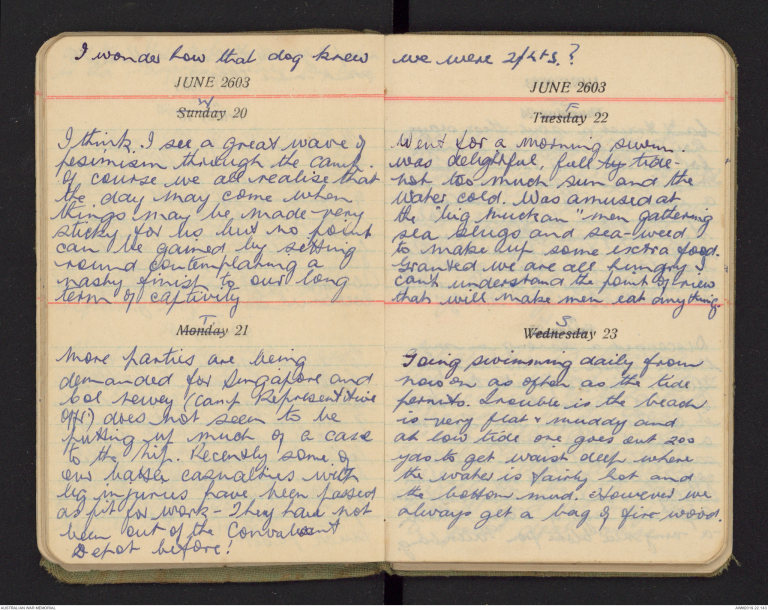 I wonder how that dog knew we were 2/4ts.?
JUNE 2603
W
Sunday 20
I think I see a great wave of
pesimism through the camp.
Of course we all realise that
the day may come when
things may be made very
sticky for us but no point
can be gained by setting
round contemplating a
nasty finish to our long
term of captivity
T
Monday 21
More parties are being
demanded for Singapore and
Col Newey (Camp Representitive
Offr) does not seem to be
putting up much of a case
to the Nip. Recently some of
our batter casualties with
leg injuries have been passed
as fit for work - They have not
been out of the Convalesent
Depot before!
JUNE 2603
F
Tuesday 22
Went for a morning swim.
was delightful, full tide -
not too much sun and the
water cold. Was amused at
the "big", men gathering
sea slugs and sea-weed
to make up some extra food.
Granted we are all hungry I
can't understand the point of view
that will make men eat anything.
S
Wednesday 23
Going swimming daily from
now on as often as the tide
permits. Trouble is the beach
is very flat & muddy and
at low tide one goes out 200
yds to get waist deep where
the water is fairly hot and
the bottom mud. However we
always get a bag of fire wood.
AUSTRALIAN WAR MEMORIAL